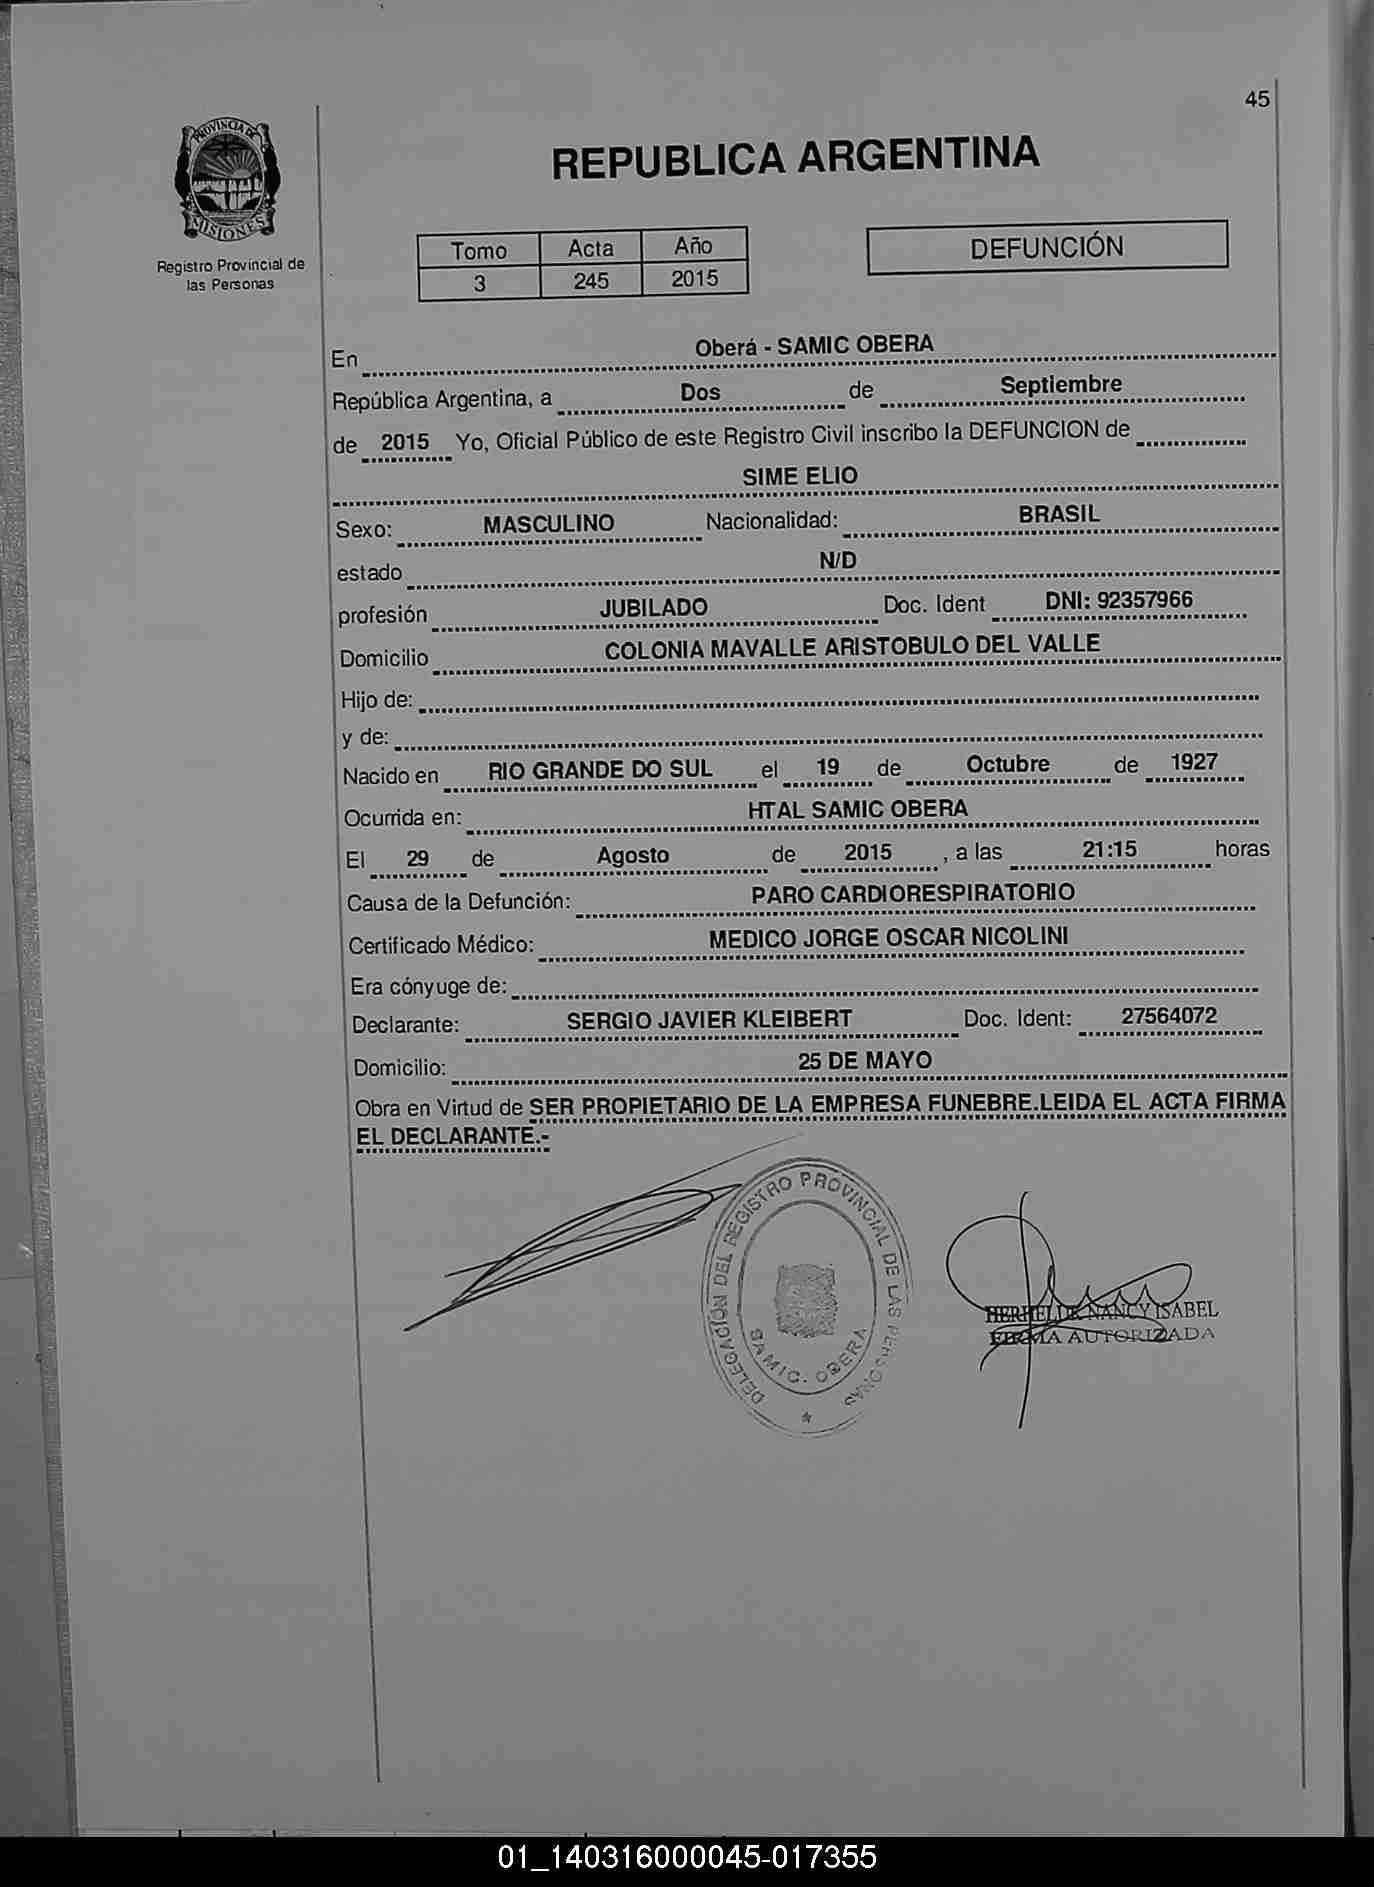 45
PROVINCIA DE
MISIONES
Registro Provincial de
las Personas
REPUBLICA ARGENTINA
Tomo Acta Año
3 245 2015
DEFUNCIÓN
En Oberá - SAMIC OBERA
República Argentina, a Dos de Septiembre
de 2015 Yo, Oficial Público de este Registro Civil inscribo la DEFUNCION de
SIME ELIO
Sexo: MASCULINO Nacionalidad: BRASIL
estado N/D
profesión JUBILADO Doc. Ident DNI: 92357966
Domicilio COLONIA MAVALLE ARISTOBULO DEL VALLE
Hijo de:
y de:
Nacido en RIO GRANDE DO SUL el 19 de Octubre de 1927
Ocurrida en: HTAL SAMIC OBERA
El 29 de Agosto de 2015 , a las 21:15 horas
Causa de la Defunción: PARO CARDIORESPIRATORIO
Certificado Médico: MEDICO JORGE OSCAR NICOLINI
Era cónyuge de:
Declarante: SERGIO JAVIER KLEIBERT Doc. Ident: 27564072
Domicilio: 25 DE MAYO
Obra en Virtud de SER PROPIETARIO DE LA EMPRESA FUNEBRE.LEIDA EL ACTA FIRMA
EL DECLARANTE.-
DELEGACIÓN DEL REGISTRO PROVINCIAL DE LAS PERSONAS
SAMIC. OBERA
NANCY ISABEL
FIRMA AUTORIZADA
01_140316000045-017355